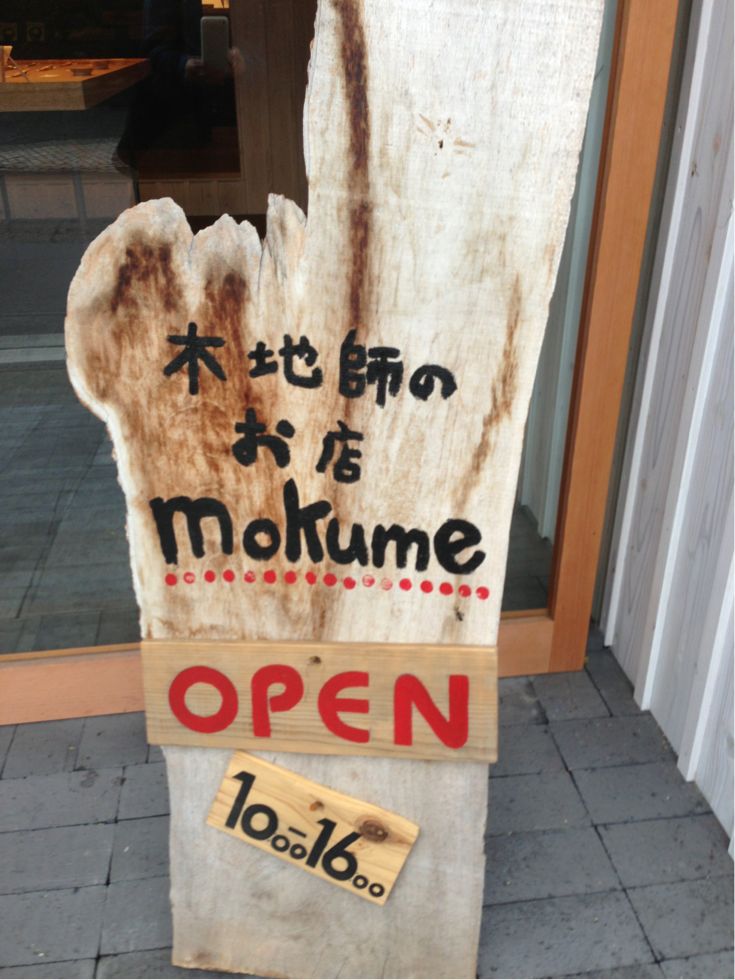 木地師の
お店
mokume
OPEN
10:00-16:00